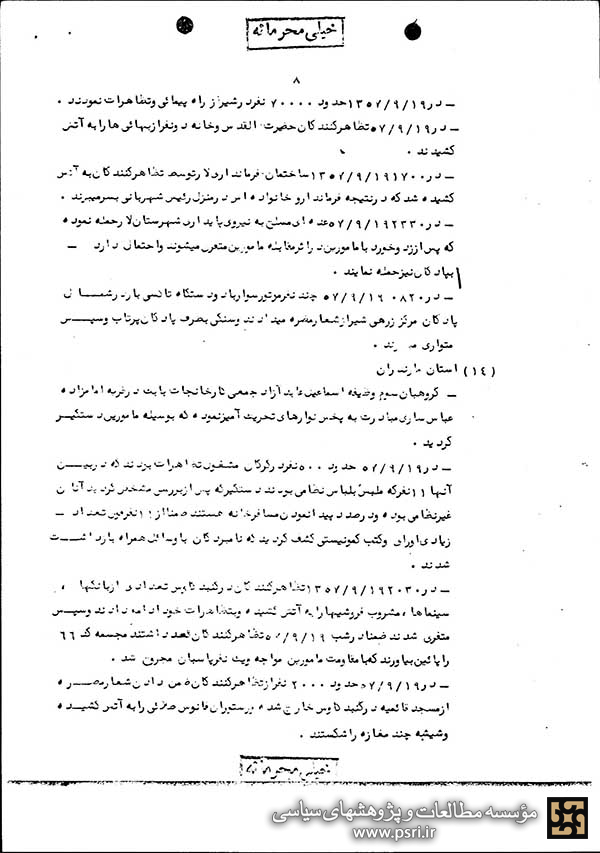 خیلی محرمانه
۸
ـ در ۱۳۵۷/۹/۱۹ حدود ۷۰۰۰۰ نفر در شیراز راه پیمائی و تظاهرات نمودند .
ـ در ۵۷/۹/۱۹ تظاهرکنندگان حضرت القدس و خانه دو نفر از بهائی ها را به آتش
کشیدند .
ـ در ۱۷۰۰ ۱۳۵۷/۹/۱۹ ساختمان فرمانداری لار توسط تظاهرکنندگان به آتش
کشیده شد که در نتیجه فرماندار و خانواده اش در منزل رئیس شهربانی بسر میبرند .
ـ در ۲۳۳۰ ۵۷/۹/۱۹ عده ای مسلح به نیروی پایداری شهرستان لار حمله نموده
که پس از زد و خورد با مامورین در اثر مقابله مامورین متفرق میشوند و احتمال دارد ـ
بپادگان نیز حمله نمایند .
ـ در ۰۸۲۰ ۵۷/۹/۱۶ چند نفر موتورسوار با دو دستگاه تاکسی بار در شمال
پادگان مرکز زرهی شیراز شعار مضره میدادند و سنگی بطرف پادگان پرتاب و سپس
متواری
(۱۴) استان مازندران
ـ گروهبان سوم وظیفه اسماعیل آزاد جمعی کارخانجات در قریه امامزاده
عباس ساری مبادرت به پخش نوارهای تحریک آمیز نموده که بوسیله مامورین دستگیر
گردید .
ـ در ۵۷/۹/۱۹ حدود ۵۰۰ نفر در گرگان مشغول تظاهرات بودند که در بین
آنها ۱۱ نفر که ملبس بلباس نظامی بودند دستگیر که پس از بررسی مشخص گردید آنان
غیرنظامی بوده و درصدد پیدا نمودن مسافرخانه هستند ضمنا از ۱۱ نفر مزبور تعداد ـ
زیادی اوراق و کتب کمونیستی کشف گردید که نامبردگان با وسائل همراه بازداشت
شدند .
ـ در ۲۰۳۰ ۱۳۵۷/۹/۱۹ تظاهرکنندگان در گنبد کاوس تعدادی از بانکها ،
سینماها ، مشروب فروشیها را به آتش کشیده و بتظاهرات خود ادامه دادند و سپس
متفرق شدند ضمنا در شب ۵۷/۹/۱۹ تظاهرکنندگان قصد داشتند مجسمه کد ۶۶
را پائین بیاورند که با مقاومت مامورین مواجه و یک نفر پاسبان مجروح شد .
ـ در ۵۷/۹/۱۹ حدود ۲۰۰۰ نفر از تظاهرکنندگان ضمن دادن شعار مضره
از مسجد قائمیه در گنبد کاوس خارج شده و رستوران فانوس طلائی را به آتش کشیده
و شیشه چند مغازه را شکستند .
خیلی محرمانه
مؤسسه مطالعات و پژوهشهای سیاسی
www.psri.ir